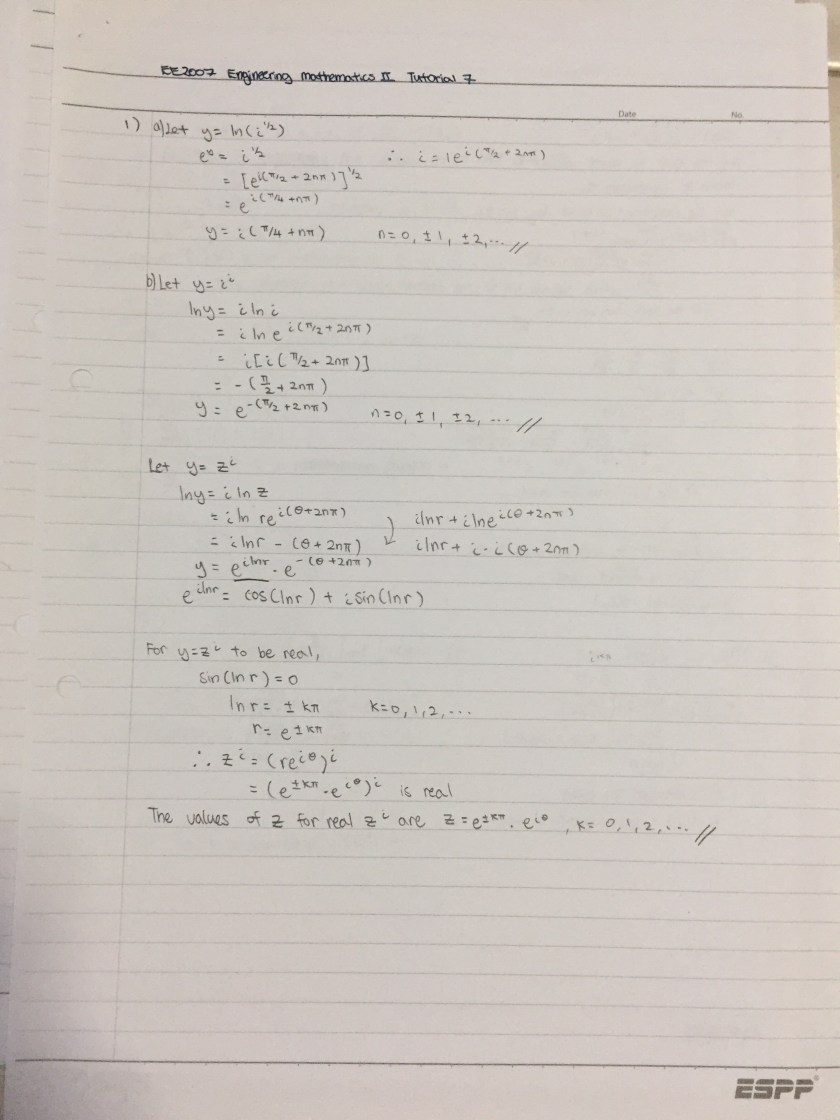 EE2007 Engineering Mathematics II Tutorial 7
Date No.
1) a) Let y = ln(i^1/2)
e^y = i^1/2 ∴ i = 1e^i(π/2 + 2nπ)
= [e^i(π/2 + 2nπ)]^1/2
= e^i(π/4 + nπ)
y = i(π/4 + nπ) n = 0, ±1, ±2, ... //
b) Let y = i^i
ln y = i ln i
= i ln e^i(π/2 + 2nπ)
= i[i(π/2 + 2nπ)]
= -(π/2 + 2nπ)
y = e^-(π/2 + 2nπ) n = 0, ±1, ±2, ... //
Let y = z^i
ln y = i ln z
= i ln re^i(θ+2nπ) i ln r + i ln e^i(θ+2nπ)
= i ln r - (θ + 2nπ) i ln r + i · i(θ + 2nπ)
y = e^i ln r · e^-(θ+2nπ)
e^i ln r = cos(ln r) + i sin(ln r)
For y = z^i to be real,
sin(ln r) = 0
ln r = ± kπ k = 0, 1, 2, ...
r = e^±kπ
∴ z^i = (re^iθ)^i
= (e^±kπ · e^iθ)^i is real
The values of z for real z^i are z = e^±kπ · e^iθ, k = 0, 1, 2, ... //
ESPP